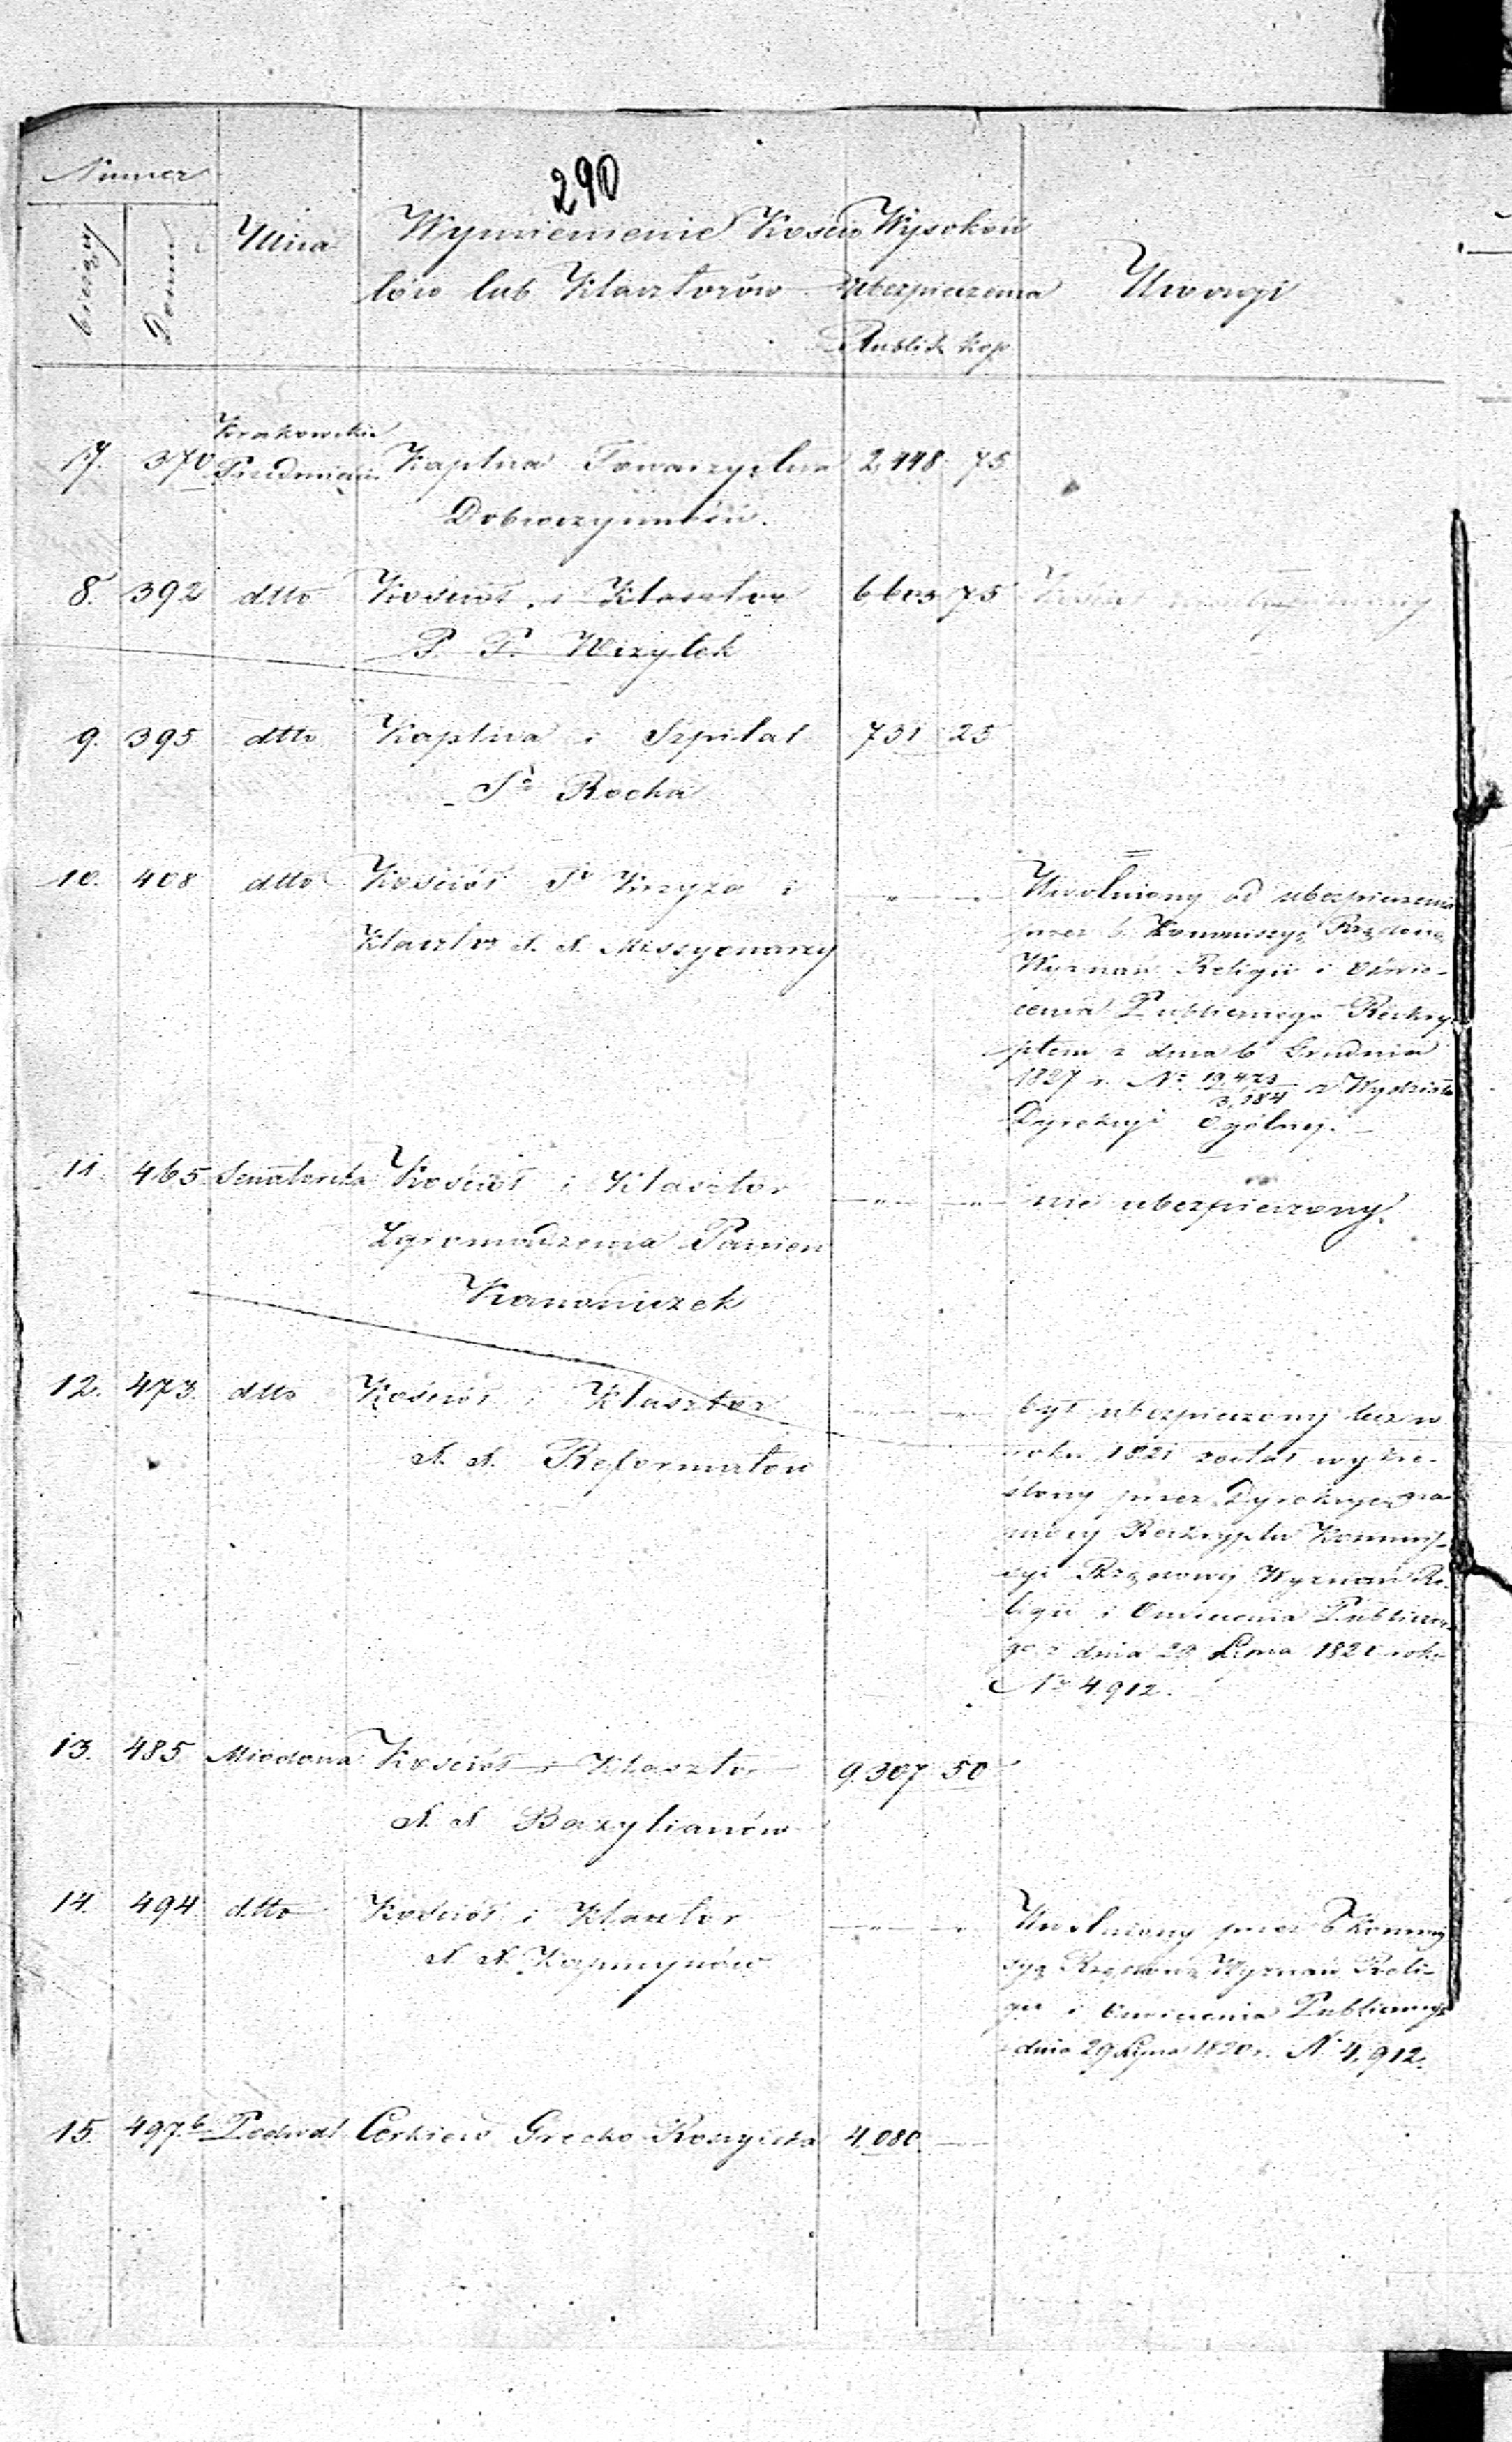 290
Numer
bieżący
Domu
Ulica
Wymienienie Kościo
łów lub Klasztorów
Wysokość
Ubezpieczenia
Rublisr kop
Uwagi
7. 370 Krakowskie
Przedmieście Kaplica Towarzystwa 2,448 75
Dobroczynności.
8. 392 dtto Kościół i Klasztor 6603 75 Kościół
P. P. Wizytek
9. 395 dtto Kaplica i Szpital 731 25
So Rocha
10. 408 dtto Kościół So Krzyża i — „ — „
Klasztor X. X. Missyonarzy
Uwolniony od ubezpieczenia
przez b. Kommissyę Rządową
Wyznań Religii i Oświe-
cenia Publicznego Reskry-
ptem z dnia 6 Grudnia
1827 r. No 19,423/3,184 z Wydziału
Dyrekcyi Ogólnej.
11. 465 Senatorska Kościół i Klasztor — „ — „ nie ubezpieczony.
Zgromadzenia Panien
Kanoniczek
12. 473. dtto Kościół i Klasztor — „ — „
X. X. Reformatów
był ubezpieczony lecz w
roku 1821 został wykre-
ślony przez Dyrekcyę na
mocy Reskryptu Kommis-
syi Rządowej Wyznań Re-
ligii i Oświecenia Publiczne-
go z dnia 29 Lipca 1820 roku
No 4,912.
13. 485 Miodowa Kościół i Klasztor 9.307 50
X. X. Bazylianów
14. 494 dtto Kościół i Klasztor — „ — „
X. X. Kapucynów
Uwolniony przez b Kommis
syę Rządową Wyznań Reli-
gii i Oświecenia Publicznego
dnia 29 Lipca 1820 r. No 4,912.
15. 497.b Podwal Cerkiew Grecko Rossyjska 4,080 —